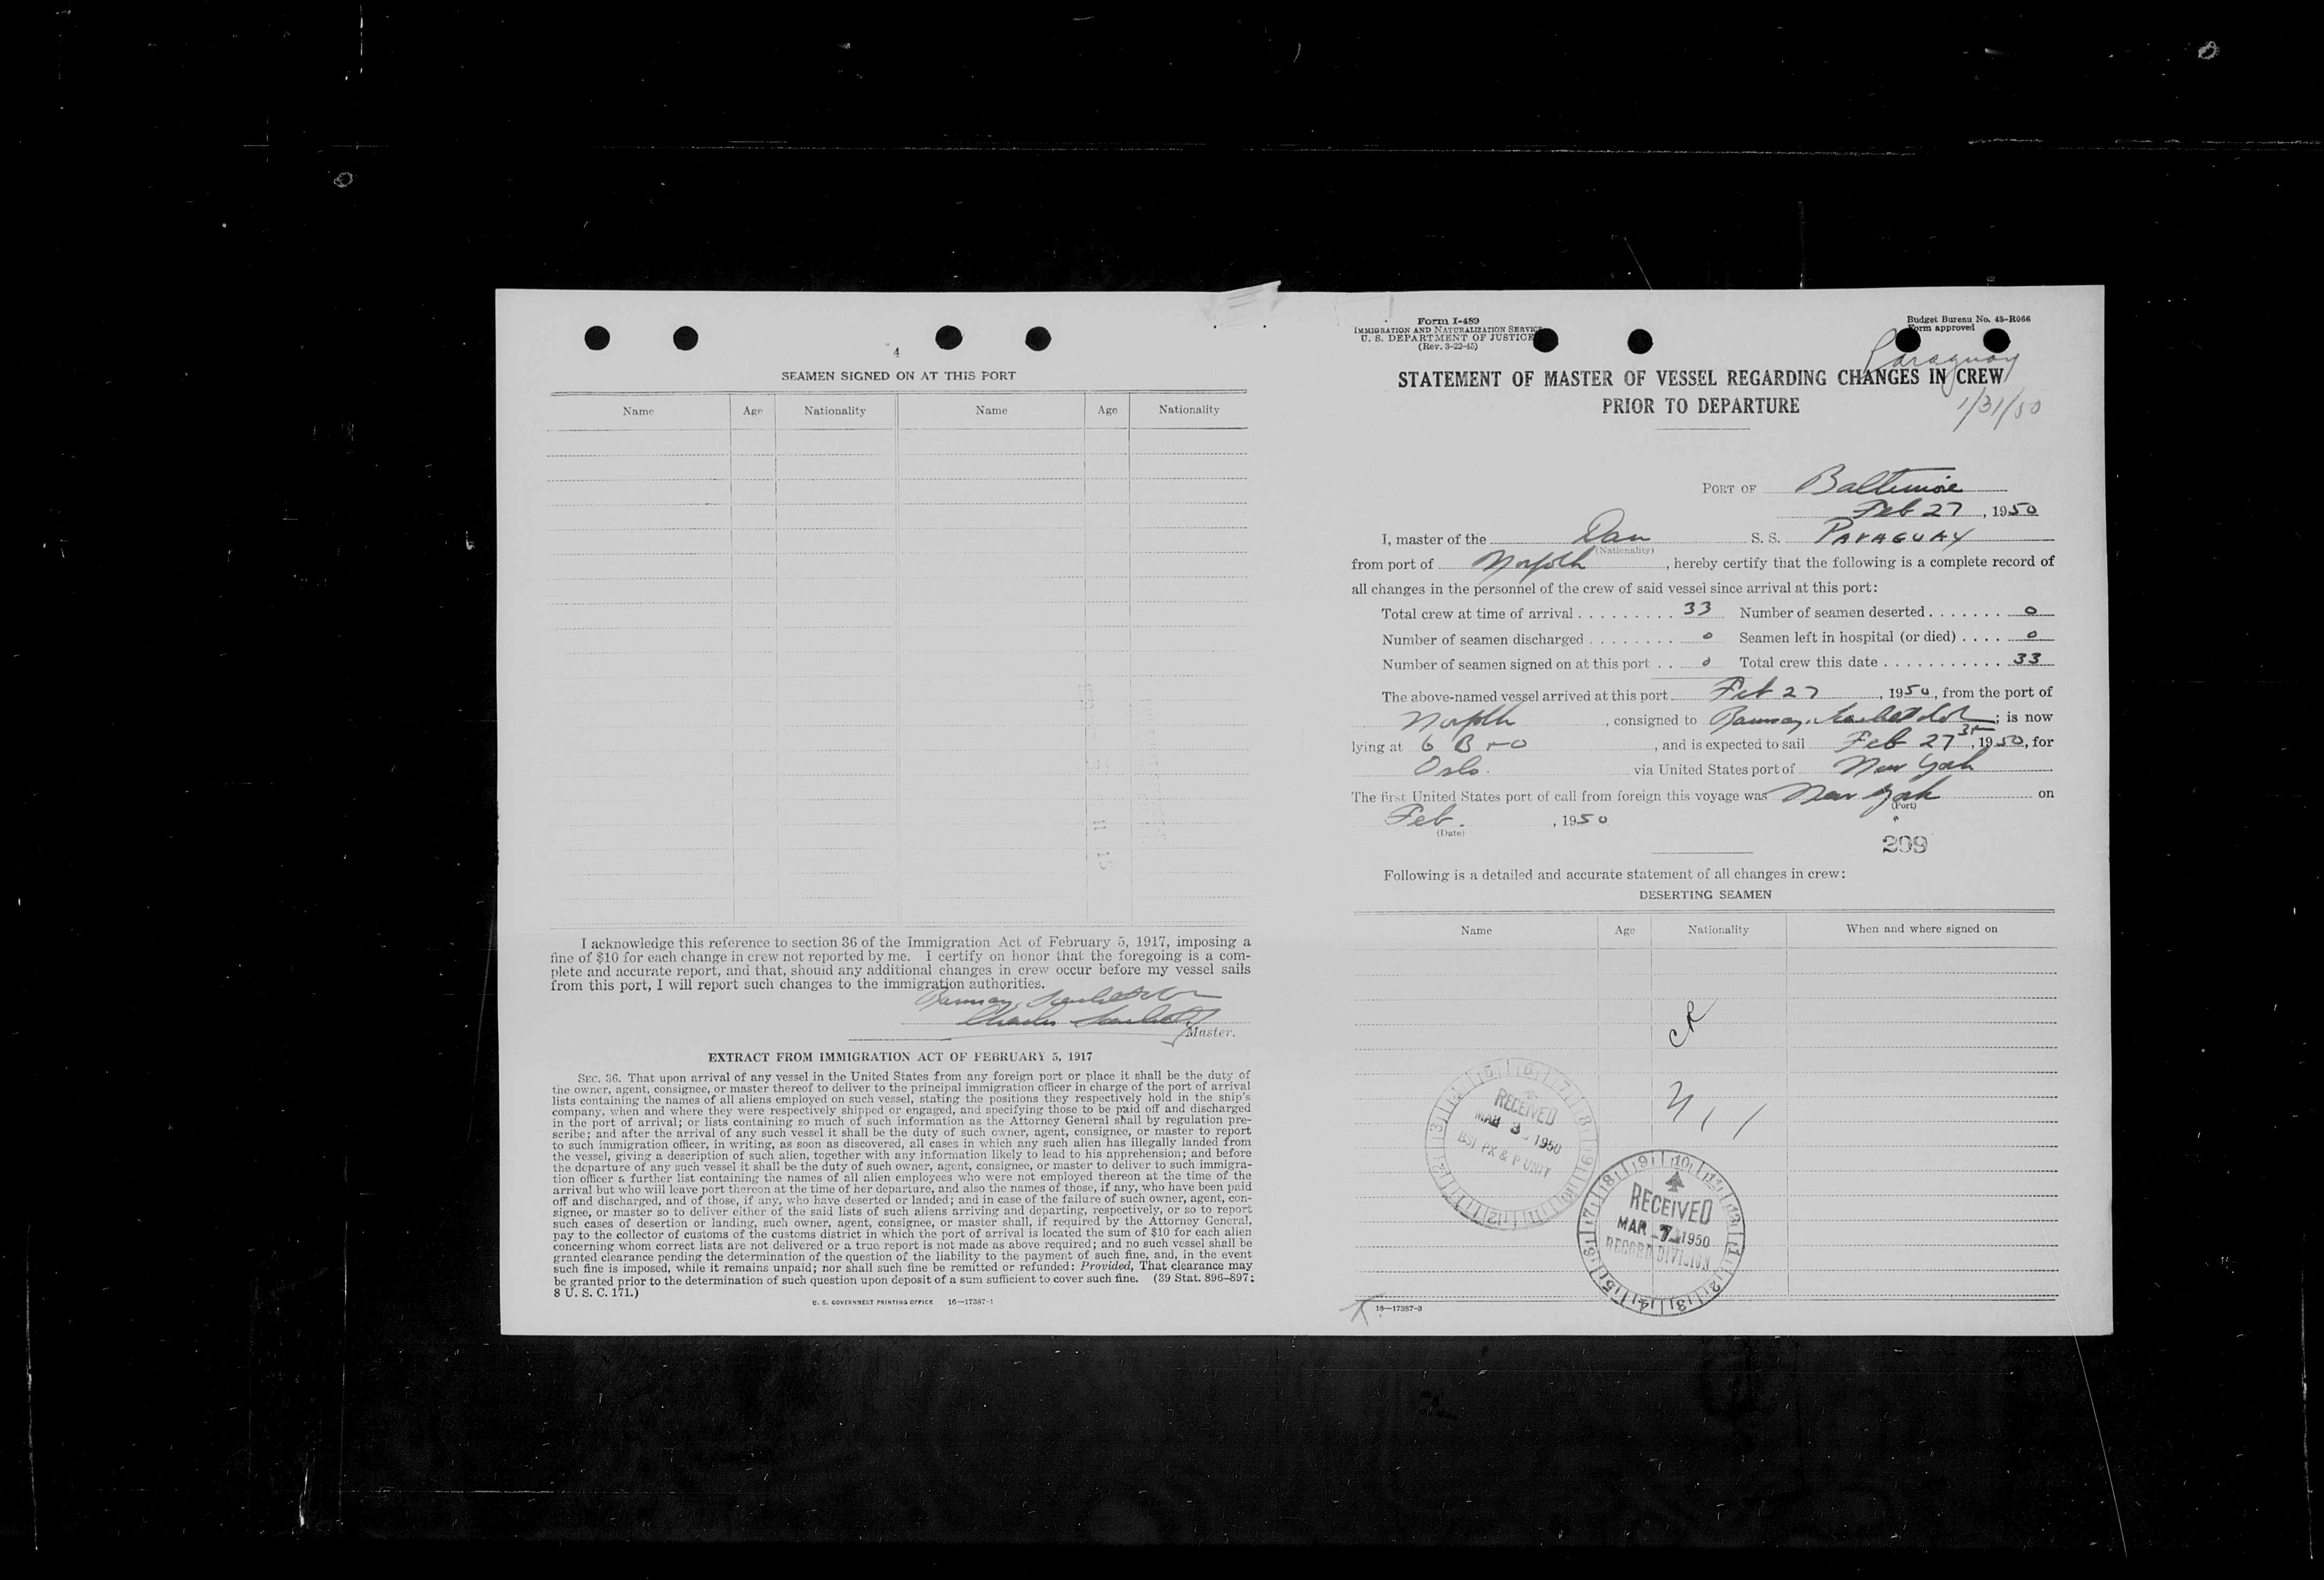 4
SEAMEN SIGNED ON AT THIS PORT
Name Age Nationality Name Age Nationality
I acknowledge this reference to section 36 of the Immigration Act of February 5, 1917, imposing a
fine of $10 for each change in crew not reported by me. I certify on honor that the foregoing is a com-
plete and accurate report, and that, should any additional changes in crew occur before my vessel sails
from this port, I will report such changes to the immigration authorities.
Ramsay,
Charles
Master.
EXTRACT FROM IMMIGRATION ACT OF FEBRUARY 5, 1917
SEC. 36. That upon arrival of any vessel in the United States from any foreign port or place it shall be the duty of
the owner, agent, consignee, or master thereof to deliver to the principal immigration officer in charge of the port of arrival
lists containing the names of all aliens employed on such vessel, stating the positions they respectively hold in the ship's
company, when and where they were respectively shipped or engaged, and specifying those to be paid off and discharged
in the port of arrival; or lists containing so much of such information as the Attorney General shall by regulation pre-
scribe; and after the arrival of any such vessel it shall be the duty of such owner, agent, consignee, or master to report
to such immigration officer, in writing, as soon as discovered, all cases in which any such alien has illegally landed from
the vessel, giving a description of such alien, together with any information likely to lead to his apprehension; and before
the departure of any such vessel it shall be the duty of such owner, agent, consignee, or master to deliver to such immigra-
tion officer a further list containing the names of all alien employees who were not employed thereon at the time of the
arrival but who will leave port thereon at the time of her departure, and also the names of those, if any, who have been paid
off and discharged, and of those, if any, who have deserted or landed; and in case of the failure of such owner, agent, con-
signee, or master so to deliver either of the said lists of such aliens arriving and departing, respectively, or so to report
such cases of desertion or landing, such owner, agent, consignee, or master shall, if required by the Attorney General,
pay to the collector of customs of the customs district in which the port of arrival is located the sum of $10 for each alien
concerning whom correct lists are not delivered or a true report is not made as above required; and no such vessel shall be
granted clearance pending the determination of the question of the liability to the payment of such fine, and, in the event
such fine is imposed, while it remains unpaid; nor shall such fine be remitted or refunded: Provided, That clearance may
be granted prior to the determination of such question upon deposit of a sum sufficient to cover such fine. (39 Stat. 896–897;
8 U. S. C. 171.)
U. S. GOVERNMENT PRINTING OFFICE 16—17387-1
Form I-489
IMMIGRATION AND NATURALIZATION SERVICE
U. S. DEPARTMENT OF JUSTICE
(Rev. 3-22-45)
Budget Bureau No. 43-R066
Form approved
Paraguay
1/31/50
STATEMENT OF MASTER OF VESSEL REGARDING CHANGES IN CREW
PRIOR TO DEPARTURE
PORT OF Baltimore
Feb 27, 1950
I, master of the Dan S. S. PARAGUAY
(Nationality)
from port of Norfolk, hereby certify that the following is a complete record of
all changes in the personnel of the crew of said vessel since arrival at this port:
Total crew at time of arrival . . . . . . . . . 33 Number of seamen deserted . . . . . . . 0
Number of seamen discharged . . . . . . . . 0 Seamen left in hospital (or died) . . . . 0
Number of seamen signed on at this port . . 0 Total crew this date . . . . . . . . . . . 33
The above-named vessel arrived at this port Feb 27, 1950, from the port of
Norfolk, consigned to Ramsay, ; is now
lying at 6 B &O, and is expected to sail Feb 27, 1950, for
Oslo. via United States port of New York
The first United States port of call from foreign this voyage was New York on
(Port)
Feb. , 1950
(Date)
209
Following is a detailed and accurate statement of all changes in crew:
DESERTING SEAMEN
Name Age Nationality When and where signed on
CR
RECEIVED
MAR 3 1950
BSI PX & P UNIT
RECEIVED
MAR 7 1950
RECORD DIVISION
16—17387-3